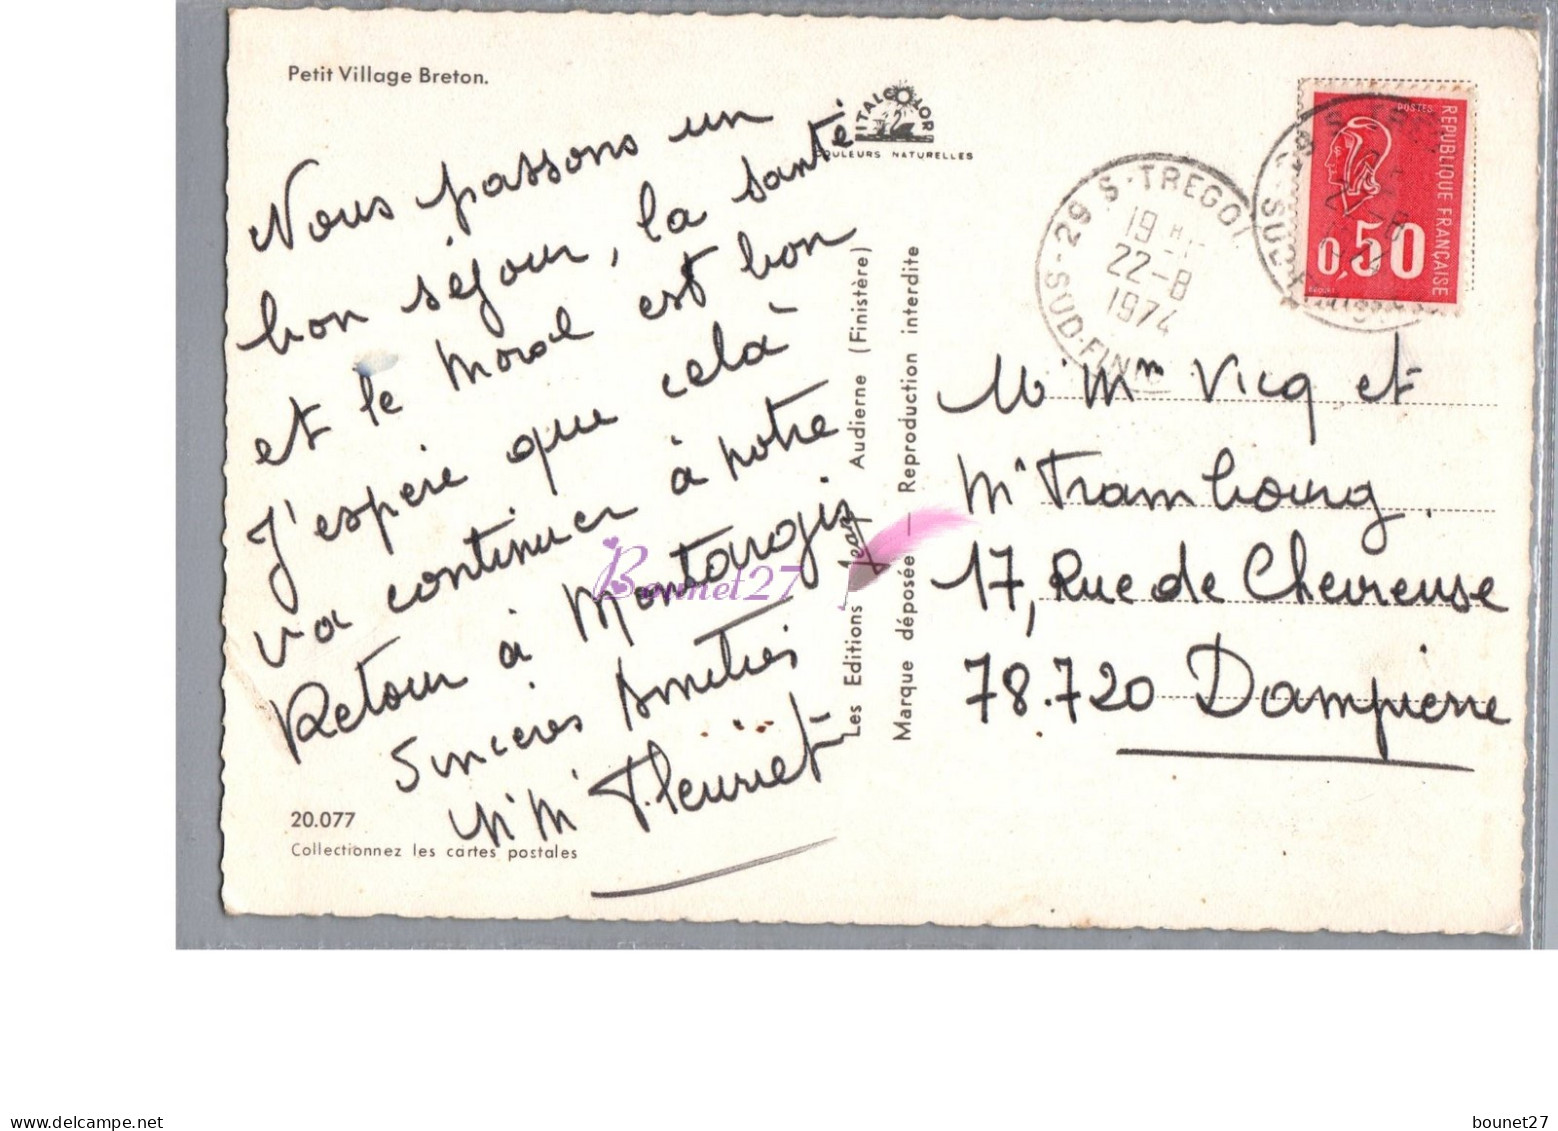 Petit Village Breton.
Nous passons un
bon séjour, la santé
et le moral est bon
J'espère que celà
va continuer à notre
Retour à Montargis
Sincères Amitiés
M Mm Fleuriet
20.077
Collectionnez les cartes postales
ITALCOLOR
COULEURS NATURELLES
Les Editions Jean Audierne (Finistère)
Marque déposée — Reproduction interdite
29 S-TREGO
19 H
22-8
1974
SUD-FIN
POSTES
REPUBLIQUE FRANÇAISE
0,50
Mr Mm Vicq et
Mr Trambourg.
17, Rue de Chevreuse
78.720 Dampierre
Bounet27
www.delcampe.net
bounet27